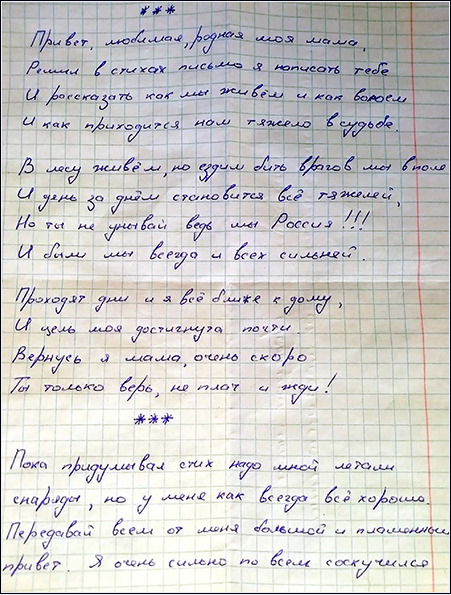 ***
Привет, любимая, родная моя мама,
Решил в стихах письмо я нописать тебе
И рассказать как мы живём и как воюем
И как приходится нам тяжело в судьбе.
В лесу живём, но ездим бить врагов мы в поле
И день за днём становится всё тяжелей,
Но ты не унывай ведь мы Россия!!!
И были мы всегда и всех сильней.
Проходят дни и я всё ближе к дому,
И цель моя достигнута почти.
Вернусь я мама, очень скоро
Ты только верь, не плач и жди!
***
Пока придумывал стих надо мной летали
снаряды, но у меня как всегда всё хорошо.
Передавай всем от меня большой и пламенный
привет. Я очень сильно по всем соскучился